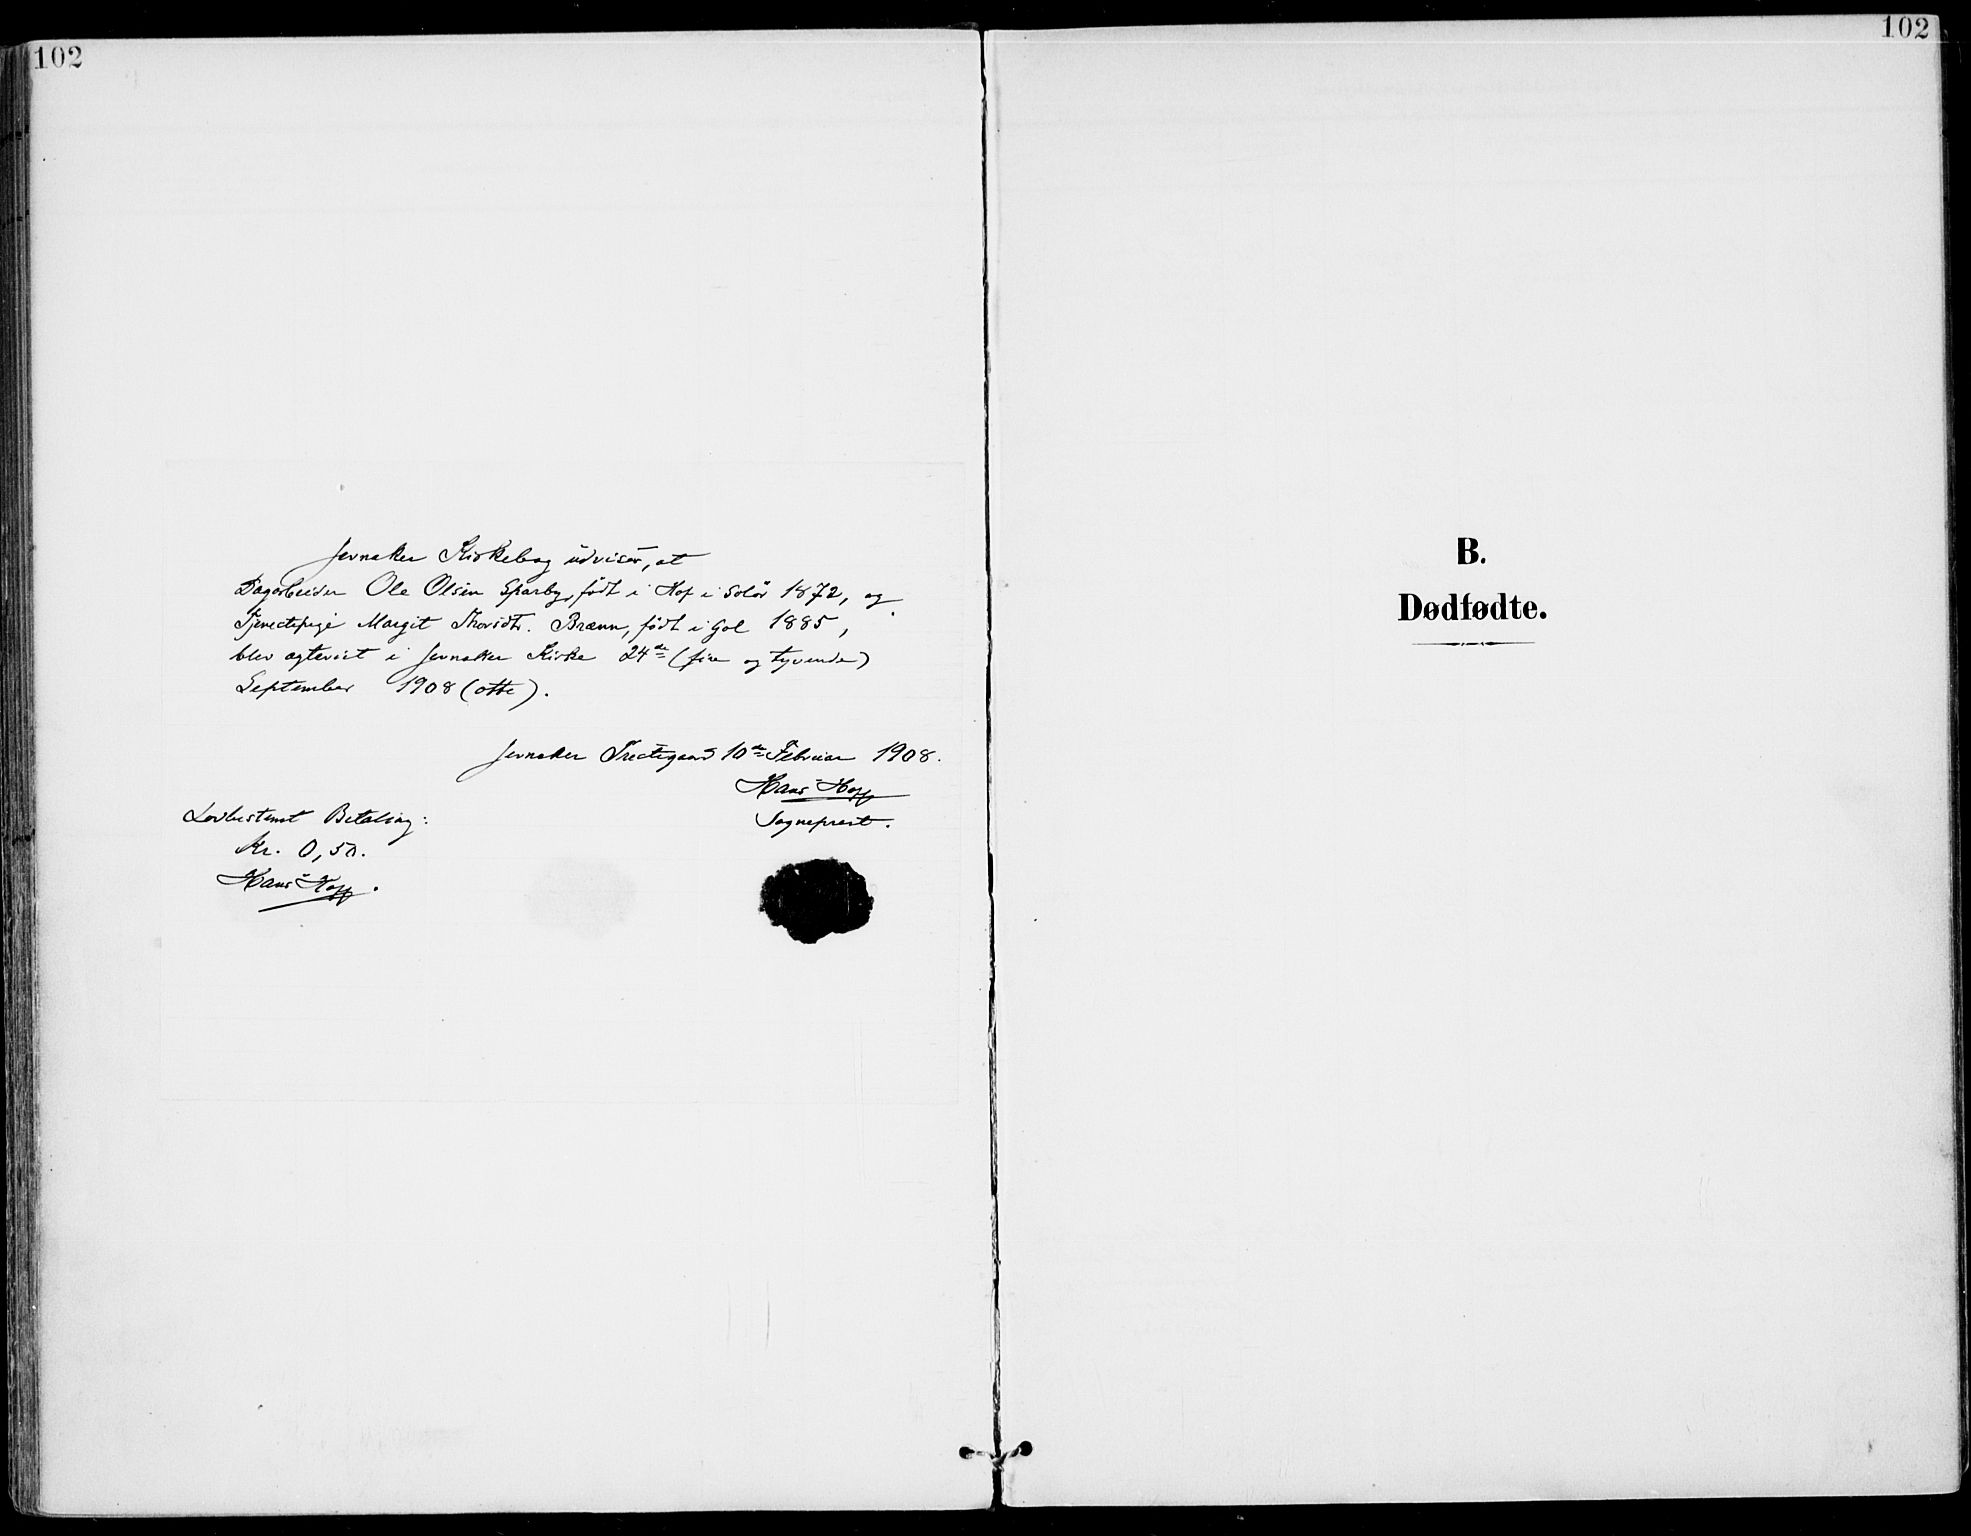 102
102
Jevnaker Kirkebog udviser, at
Dagarbeider Ole Olsen Sparby, født i Hof i Solør 1872, og
Tjenestepige Margit Thorsdtr. Brænn, født i Gol 1885,
blev ægteviet i Jevnaker Kirke 24de (fire og tyvende)
September 1908 (otte).
Jevnaker Prestegaard 10de Februar 1908.
Hans Hopp
Sogneprest.
Lovbestemt Betaling:
Kr. 0,50.
Hans Hopp.
B.
Dødfødte.